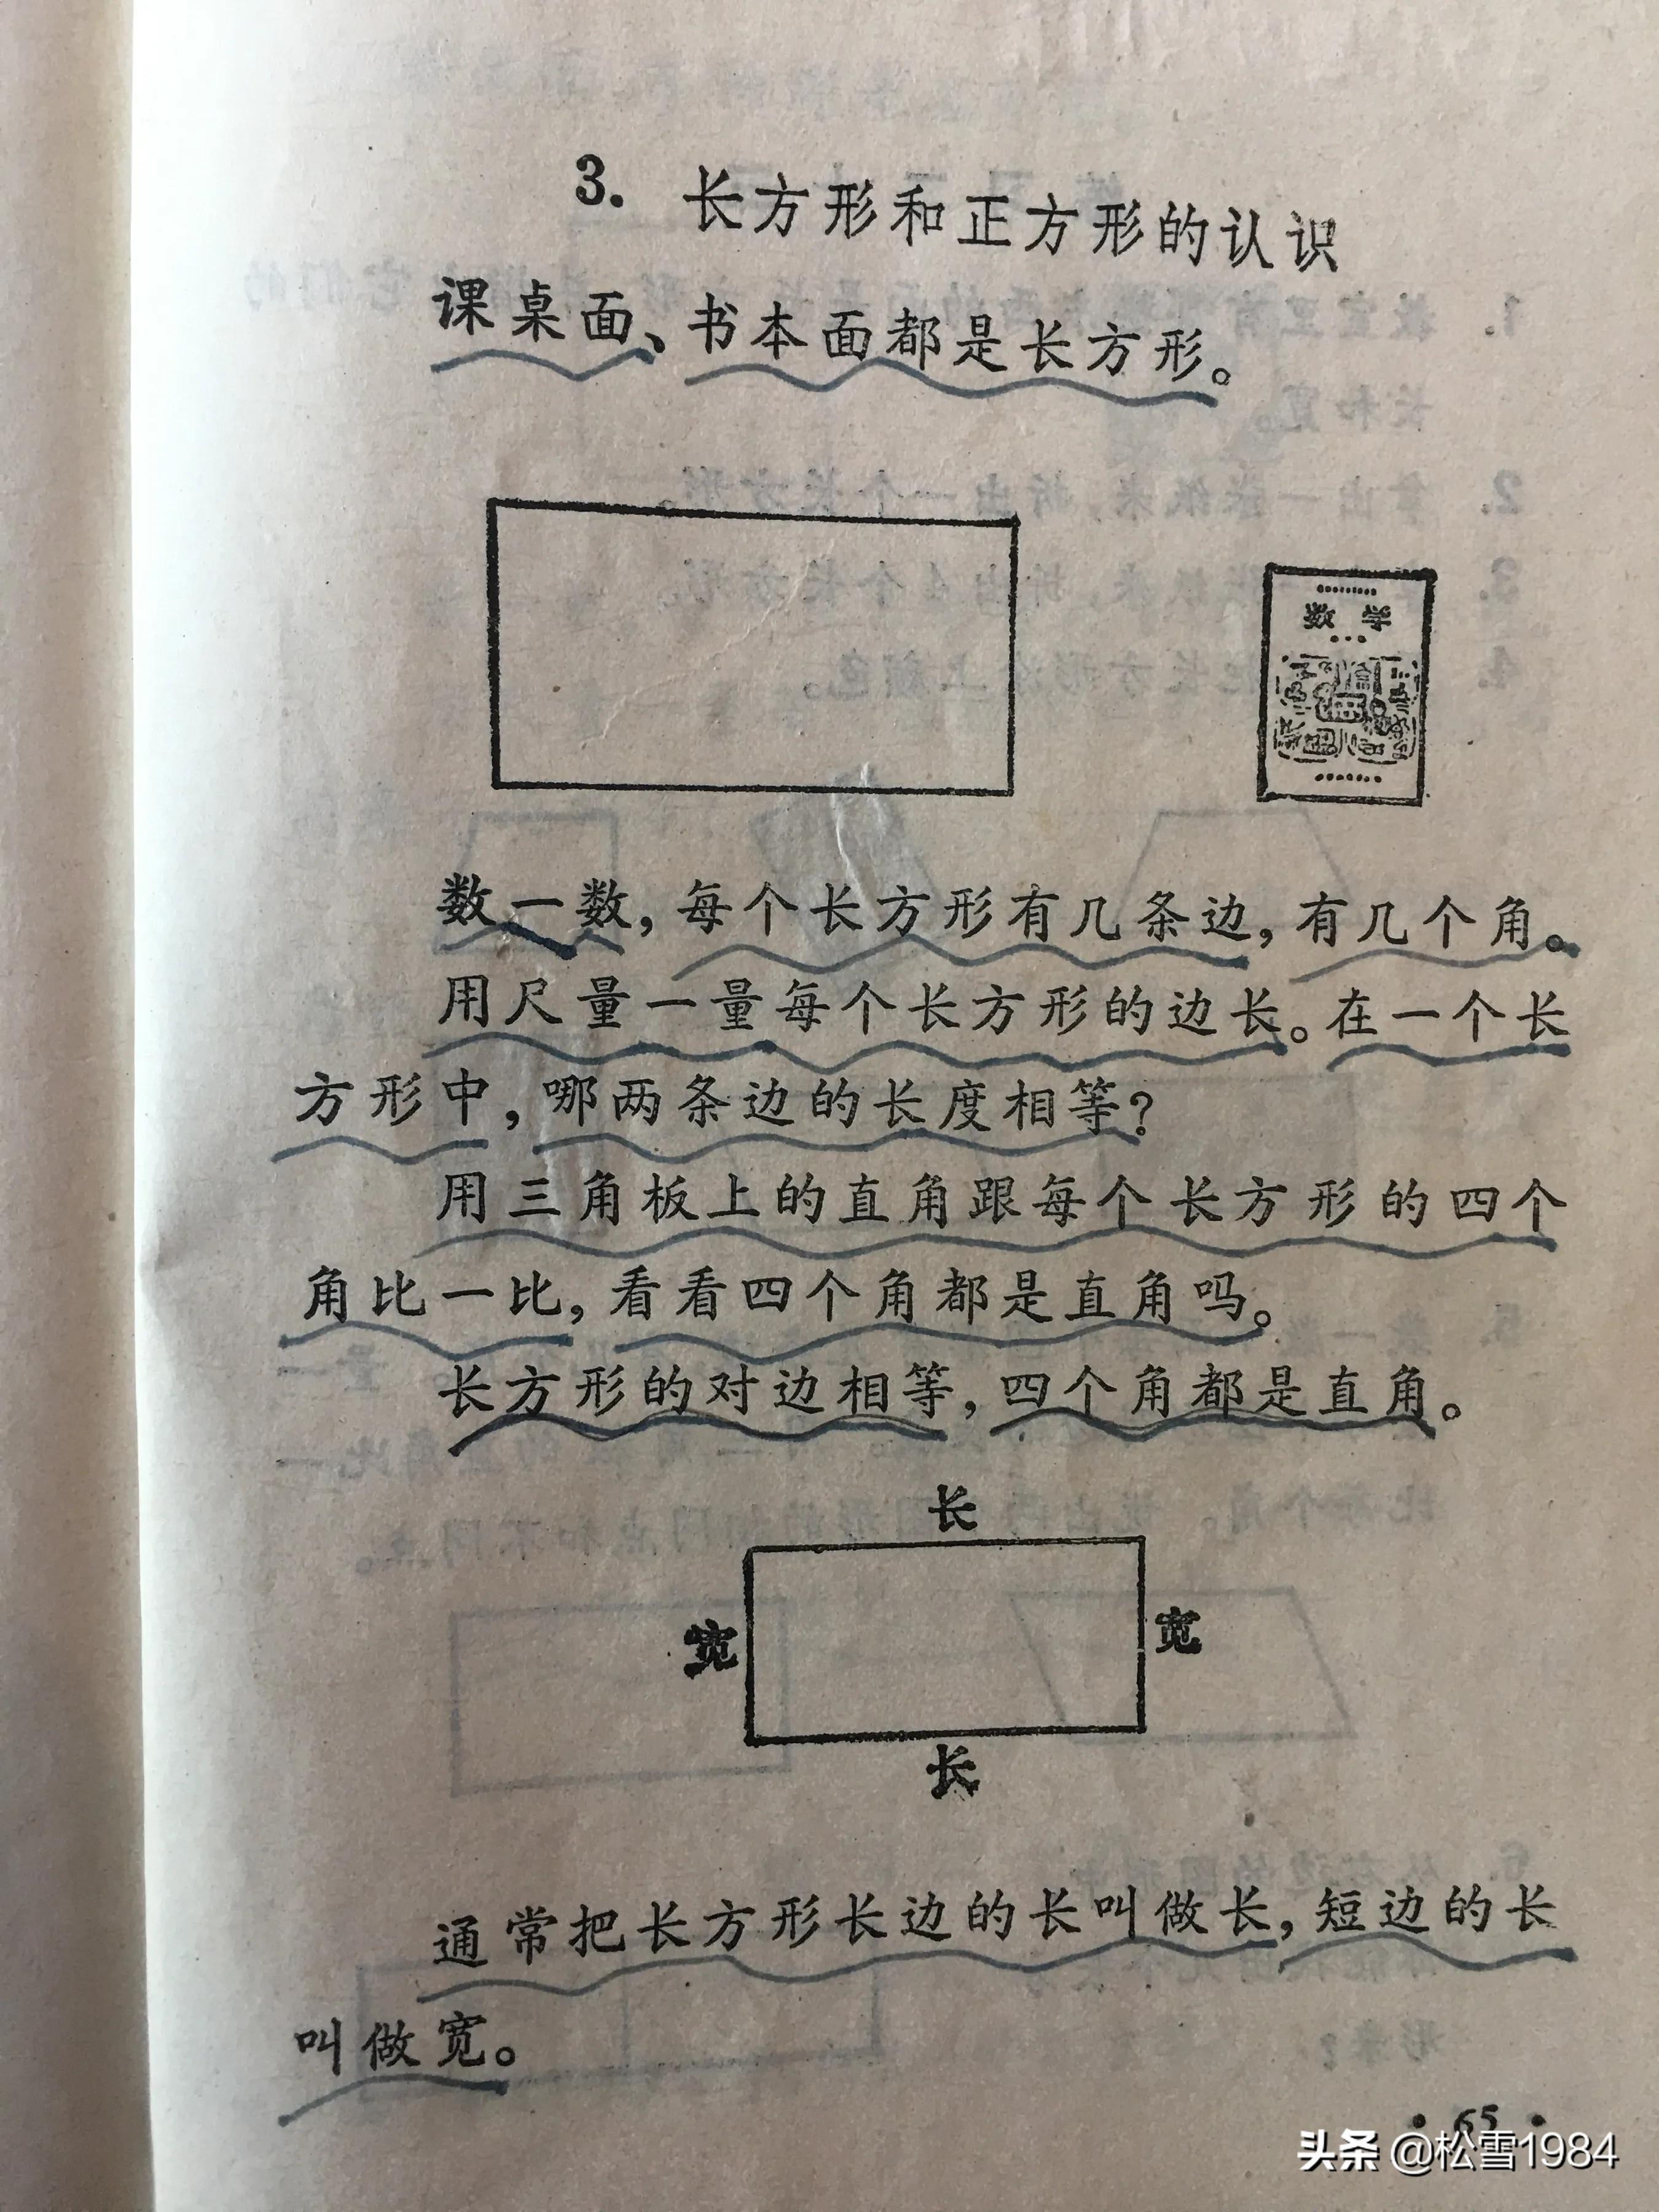 3. 长方形和正方形的认识
课桌面、书本面都是长方形。
数学
数一数，每个长方形有几条边，有几个角。
用尺量一量每个长方形的边长。在一个长
方形中，哪两条边的长度相等？
用三角板上的直角跟每个长方形的四个
角比一比，看看四个角都是直角吗。
长方形的对边相等，四个角都是直角。
长
宽 宽
长
通常把长方形长边的长叫做长，短边的长
叫做宽。
• 65 •
头条 @松雪1984